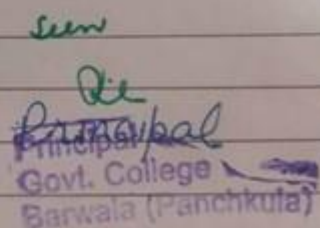 Seen
Principal
Principal
Govt. College
Barwala (Panchkula)